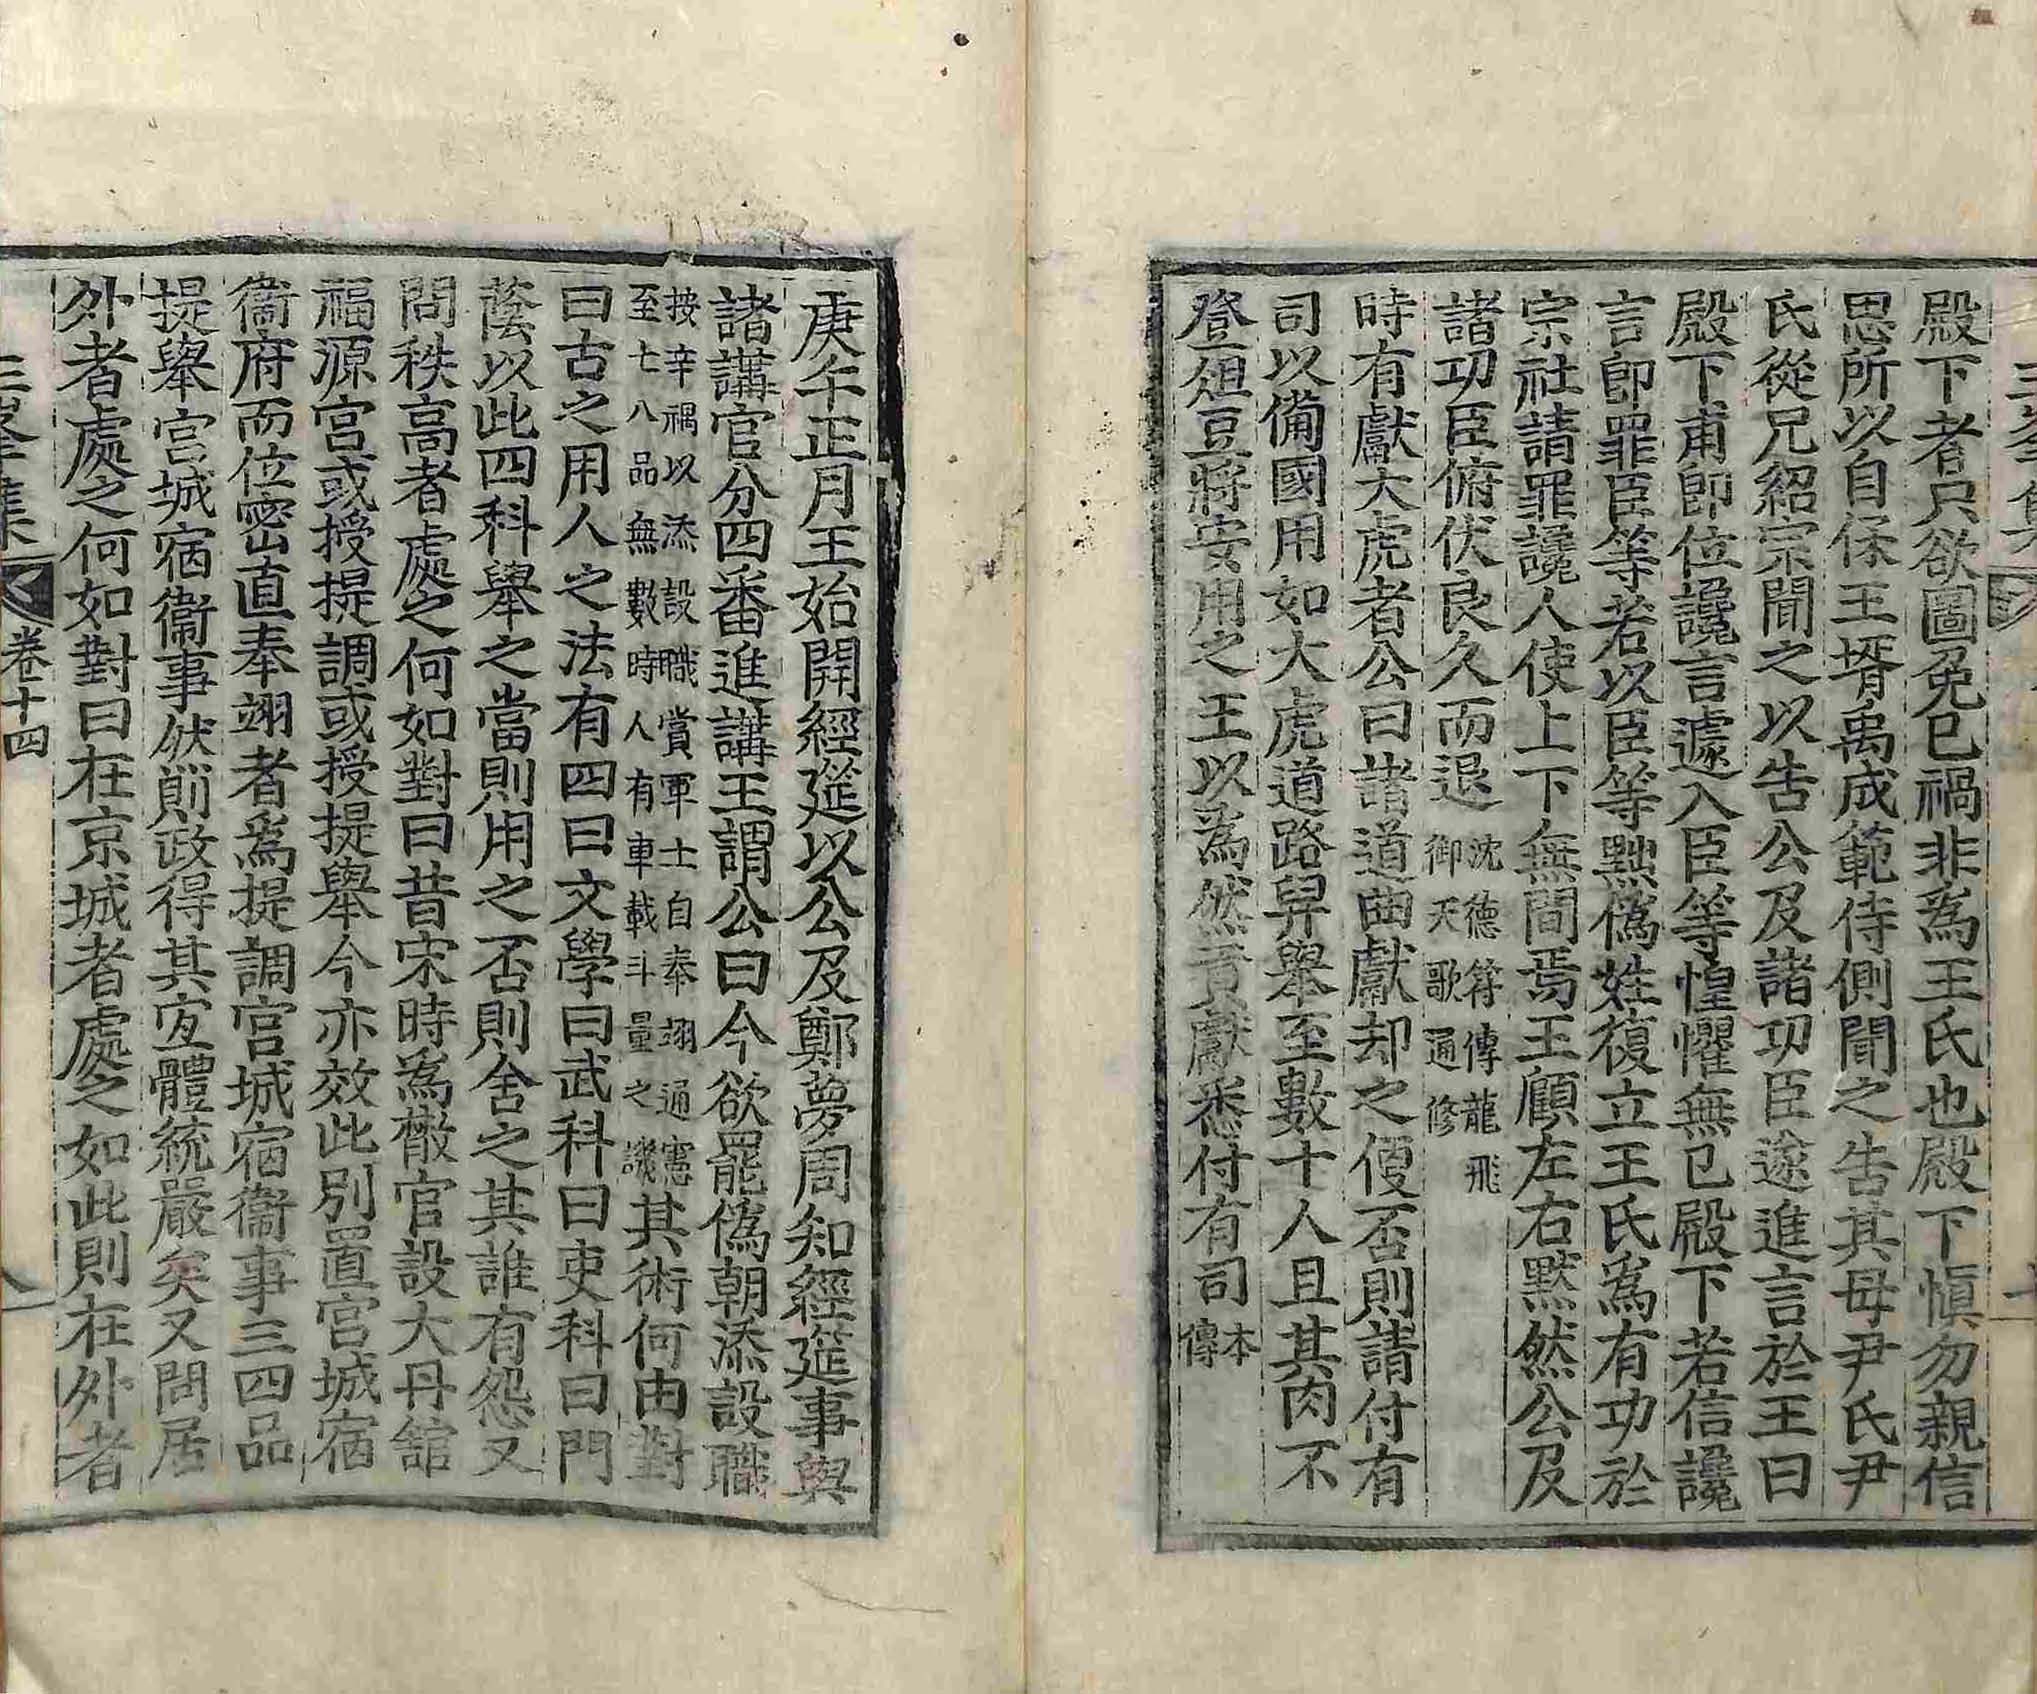 殿下者只欲圖免己禍非爲王氏也殿下愼勿親信
思所以自保王壻禹成範侍側聞之告其母尹氏尹
氏從兄紹宗聞之以告公及諸功臣遂進言於王曰
殿下甫卽位讒言遽入臣等惶懼無已殿下若信讒
言卽罪臣等若以臣等黜僞姓復立王氏爲有功於
宗社請罪讒人使上下無間焉王顧左右默然公及
諸功臣俯伏良久而退
沈德符傳龍飛
御天歌通修
時有獻大虎者公曰諸道曲獻却之便否則請付有
司以備國用如大虎道路舁擧至數十人且其肉不
登俎豆將安用之王以爲然貢獻悉付有司
本
傳
庚午正月王始開經筵以公及鄭夢周知經筵事與
諸講官分四番進講王謂公曰今欲罷僞朝添設職
按辛禑以添設職賞軍士自奉翊通憲
至七八品無數時人有車載斗量之譏
其術何由對
曰古之用人之法有四曰文學曰武科曰吏科曰門
蔭以此四科擧之當則用之否則舍之其誰有怨又
問秩高者處之何如對曰昔宋時爲散官設大丹舘
福源宮或授提調或授提擧今亦效此別置宮城宿
衞府而位密直奉翊者爲提調宮城宿衞事三四品
提擧宮城宿衞事然則政得其宜體統嚴矣又問居
外者處之何如對曰在京城者處之如此則在外者
三峯集
卷十四
八